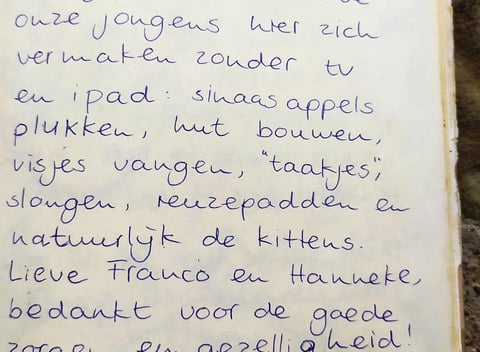 onze jongens hier zich
vermaken zonder tv
en ipad: sinaasappels
plukken, hut bouwen,
visjes vangen, "taakjes",
slangen, reuzepadden en
natuurlijk de kittens.
Lieve Franco en Hanneke,
bedankt voor de goede
zorgen en gezelligheid!